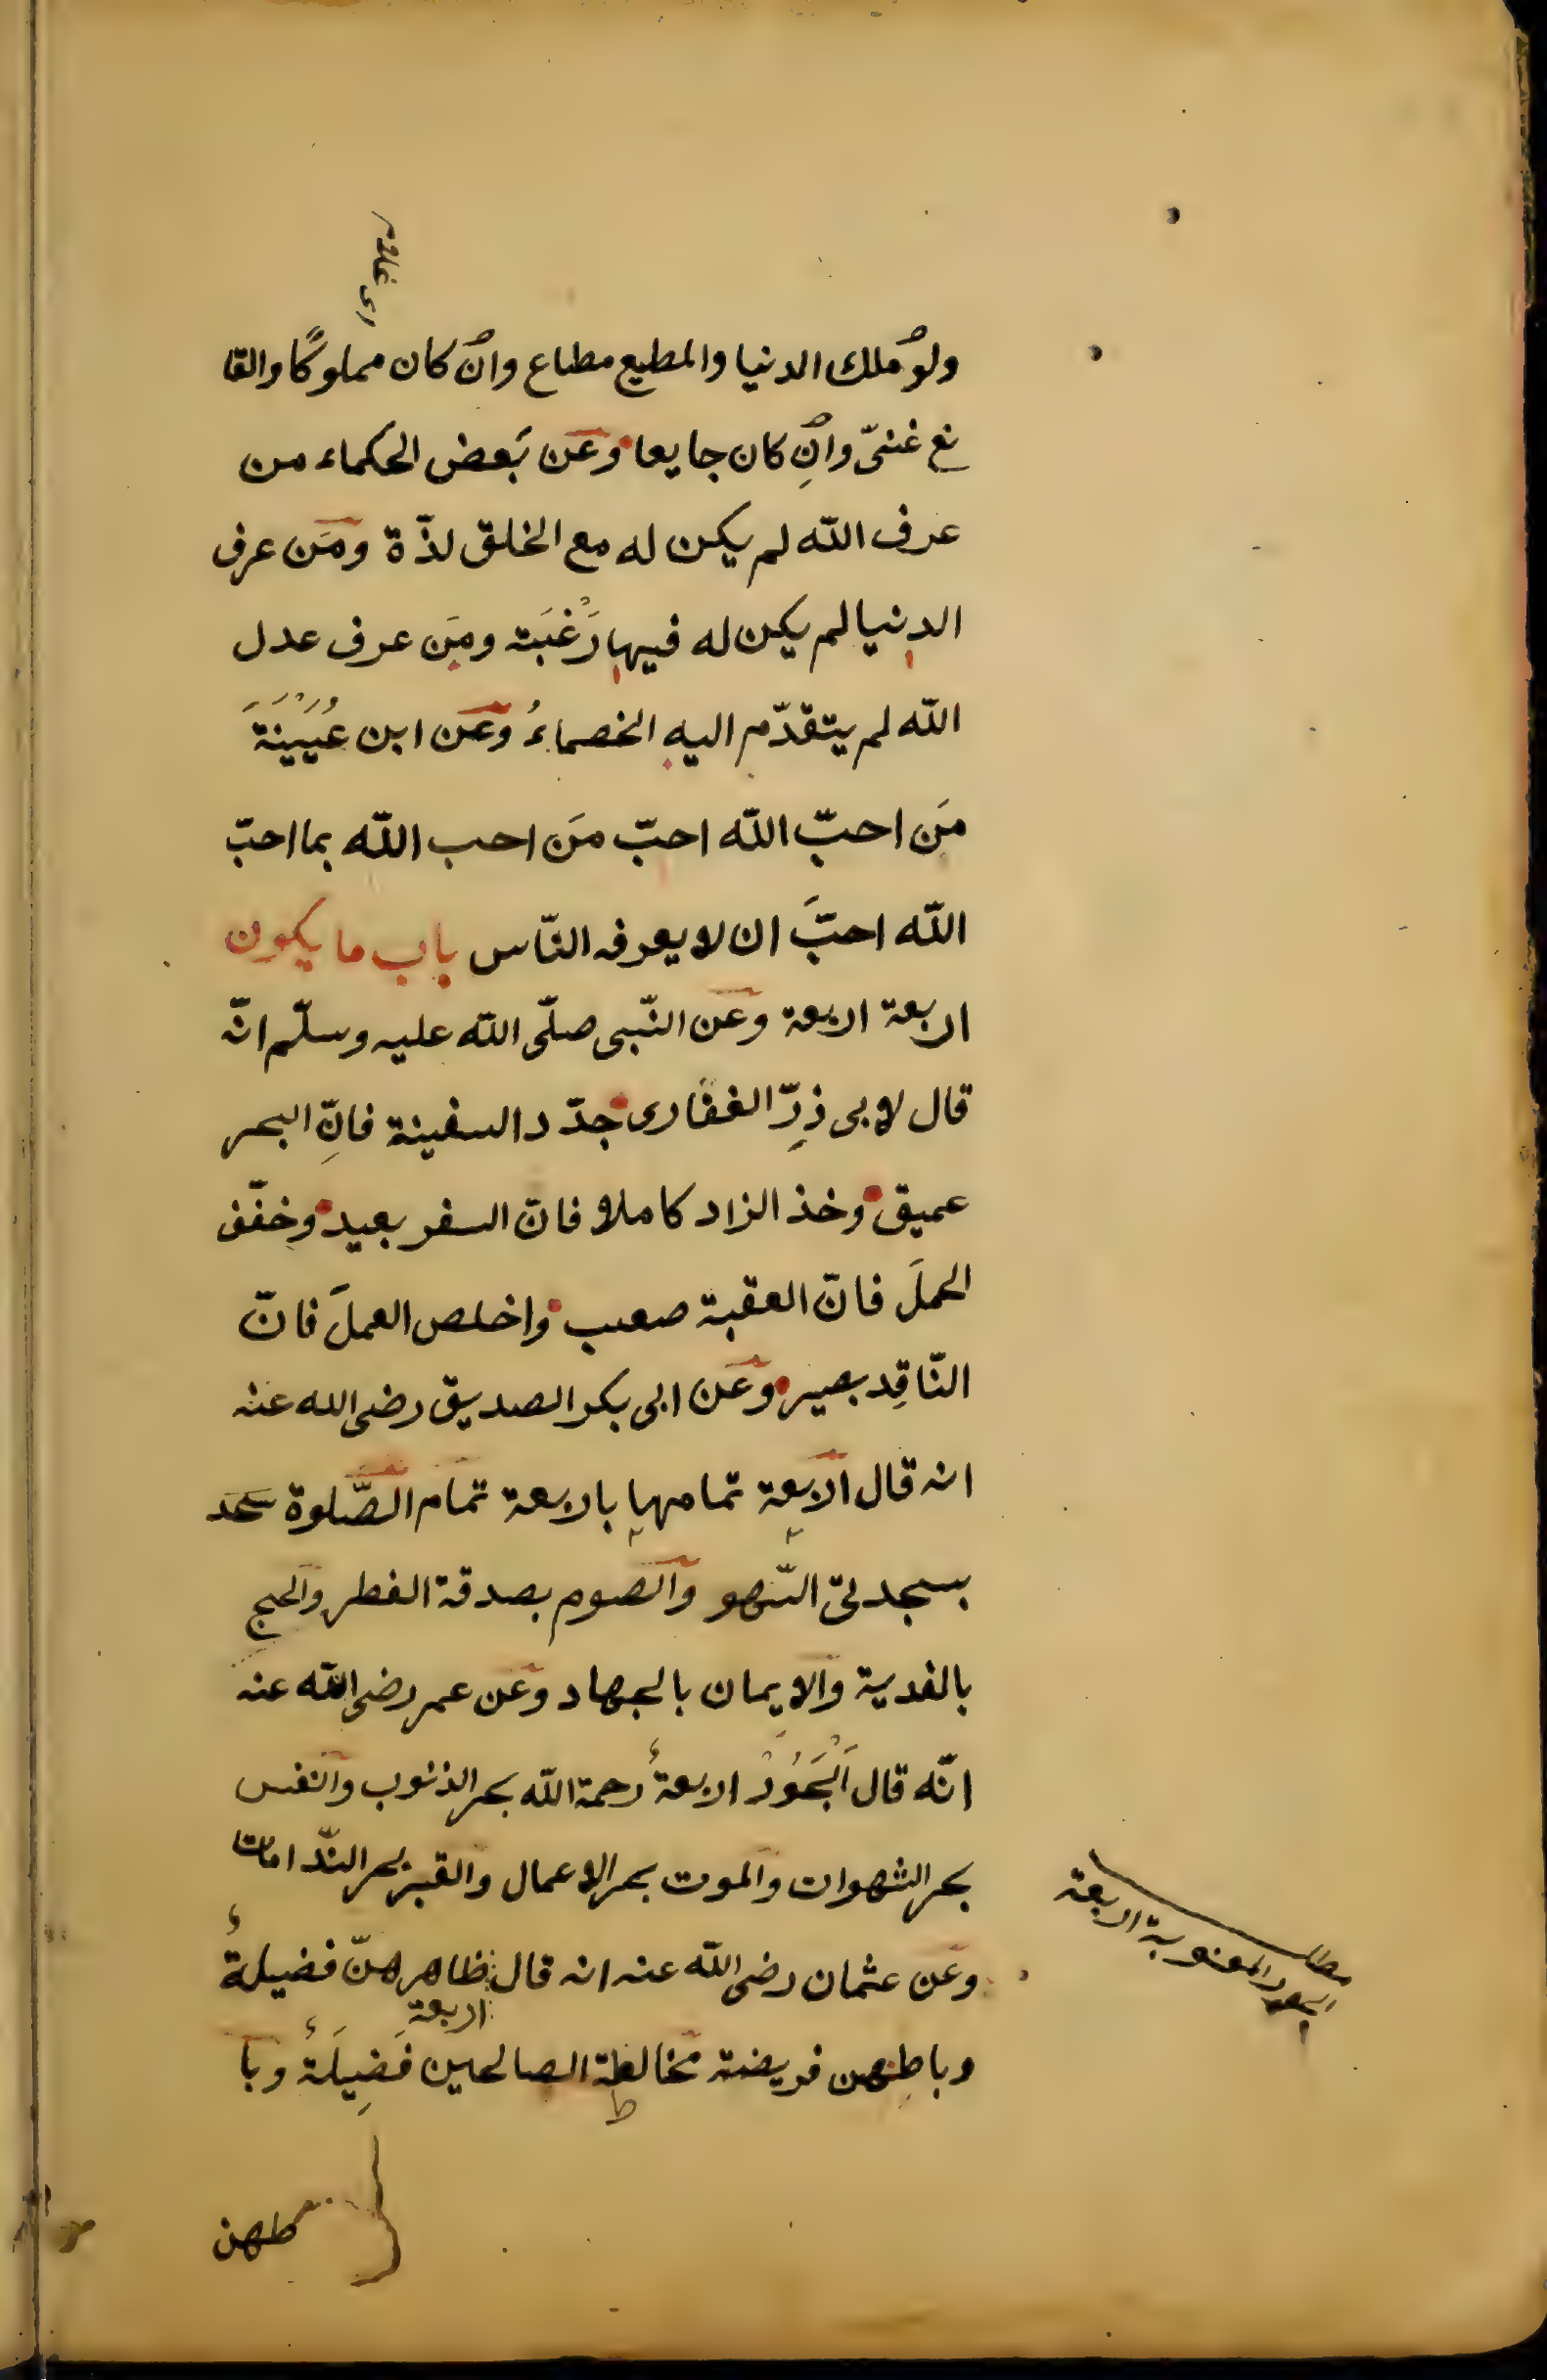 اى غلام
ولو ملك الدنيا والمطيع مطاع وان كان مملوكًا والقا
نع غنىّ وانِ كان جايعا وعَن بَعض الحكماء من
عرف الله لم يكن له مع الخلق لذّة ومَن عرف
الدنيا لم يكن له فيها رَغْبَة ومَن عرف عدل
الله لم يتقدّم اليه الخصماءُ وعَن ابن عُيَيْنَةَ
مَن احبّ الله احبّ مَن احب الله بما احبّ
الله احبَّ ان لا يعرفه النّاس باب ما يكون
اربعة اربعة وعَن النّبى صلّى الله عليه وسلّم انّه
قال لابى ذرِّ الغفارى جدّد السفينة فانِّ البحر
عميق وخذ الزاد كاملا فانّ السفر بعيد وخفّف
الحملَ فانّ العقبة صعب واخلص العملَ فانّ
النّاقِد بصير وعَن ابى بكر الصديق رضى الله عنه
انه قال اربعة تمامها باربعة تمام الصّلوة
بسجدتى السّهو والصوم بصدقة الفطر والحج
بالفدية والايمان بالجهاد وعَن عمر رضى الله عنه
انّه قال اَلْبُحُوْر اربعةٌ رحمة الله بحر الذنوب والنفس
بحر الشهوات والموت بحر الاعمال والقبر بحر النّدامات
وعَن عثمان رضى الله عنه انه قال ظاهرهنّ فضيلةٌ
اربعة
وباطنهن فريضة مخالطة الصالحين فَضِيلَةٌ وبا
ط
طهن
مطلب
البحور المعنوية اربعة